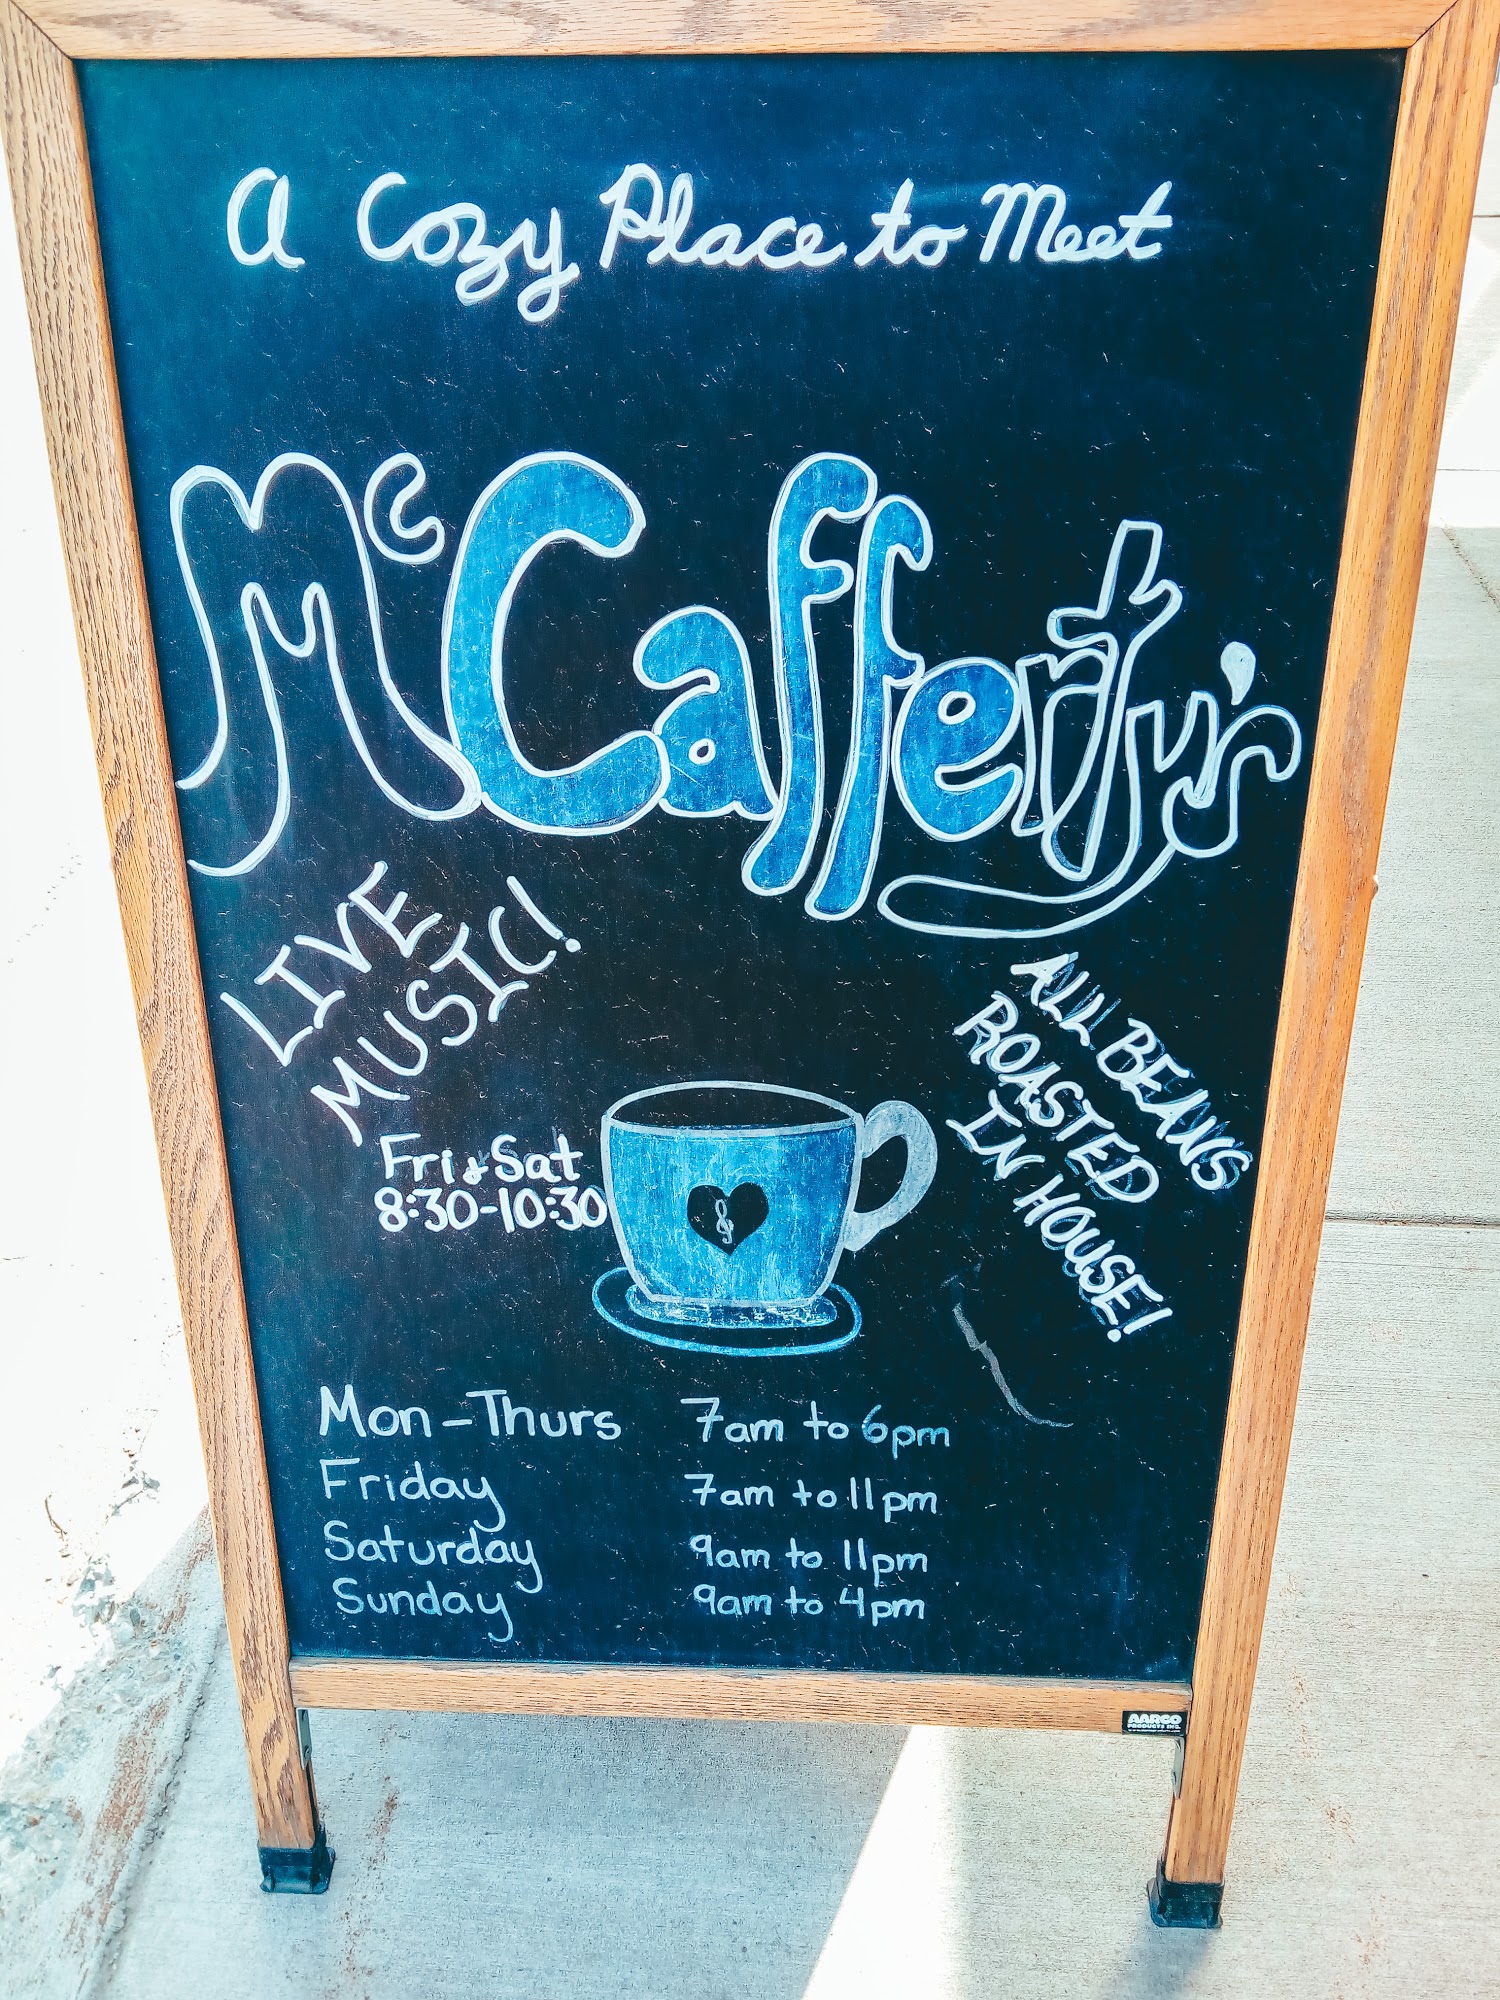 A Cozy Place to Meet
McCafferty's
LIVE
MUSIC!
Fri & Sat
8:30-10:30
ALL BEANS
ROASTED
IN HOUSE!
Mon-Thurs 7am to 6pm
Friday 7am to 11pm
Saturday 9am to 11pm
Sunday 9am to 4pm
AARCO
PRODUCTS INC.